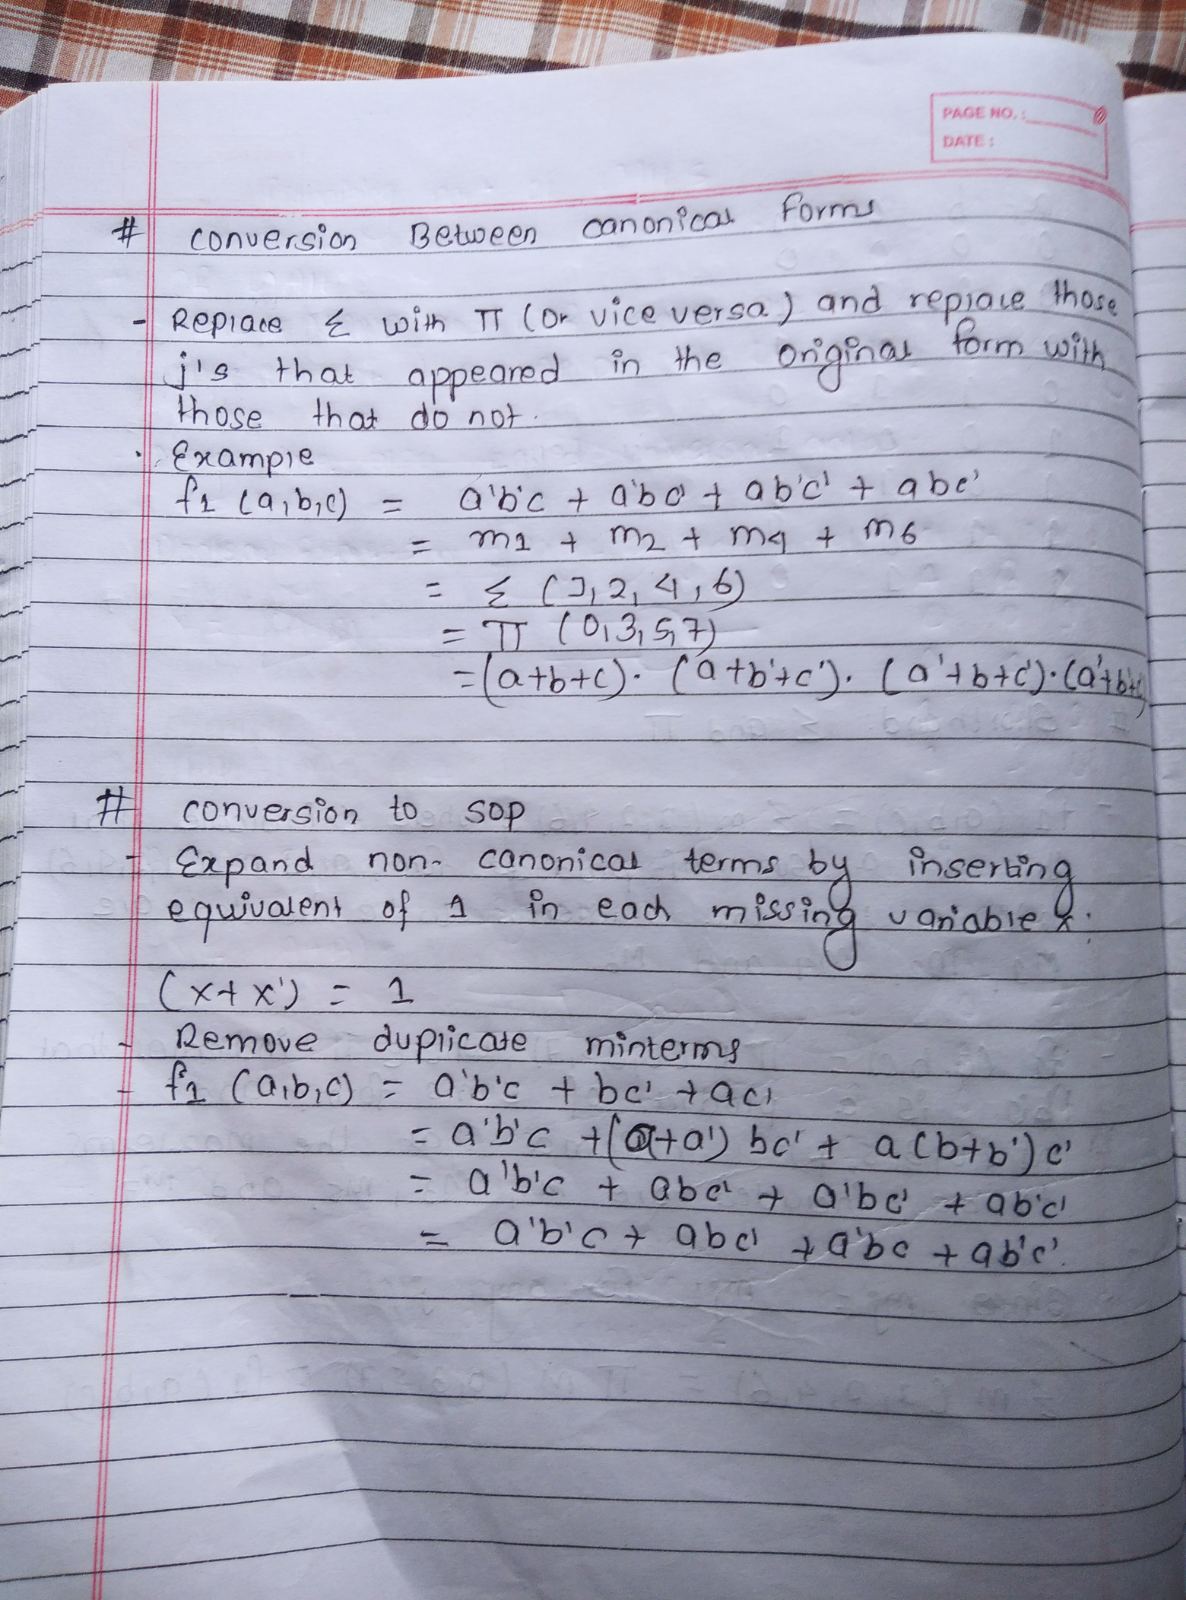 PAGE NO.:
DATE:
# conversion Between canonical Forms
- Replace Σ with π (or vice versa) and replace those
j's that appeared in the original form with
those that do not.
. Example
f1 (a,b,c) = a'b'c + a'bc' + ab'c' + abc'
= m1 + m2 + m4 + m6
= Σ (1,2,4,6)
= π (0,3,5,7)
=(a+b+c). (a+b'+c'). (a'+b+c').(a'+b'+c')
# conversion to SOP
- Expand non-canonical terms by inserting
equivalent of 1 in each missing variable x.
(x+x') = 1
- Remove duplicate minterms
- f1 (a,b,c) = a'b'c + bc' + ac'
= a'b'c +(a+a') bc' + a(b+b')c'
= a'b'c + abc' + a'bc' + ab'c'
= a'b'c + abc' + a'bc + ab'c'.